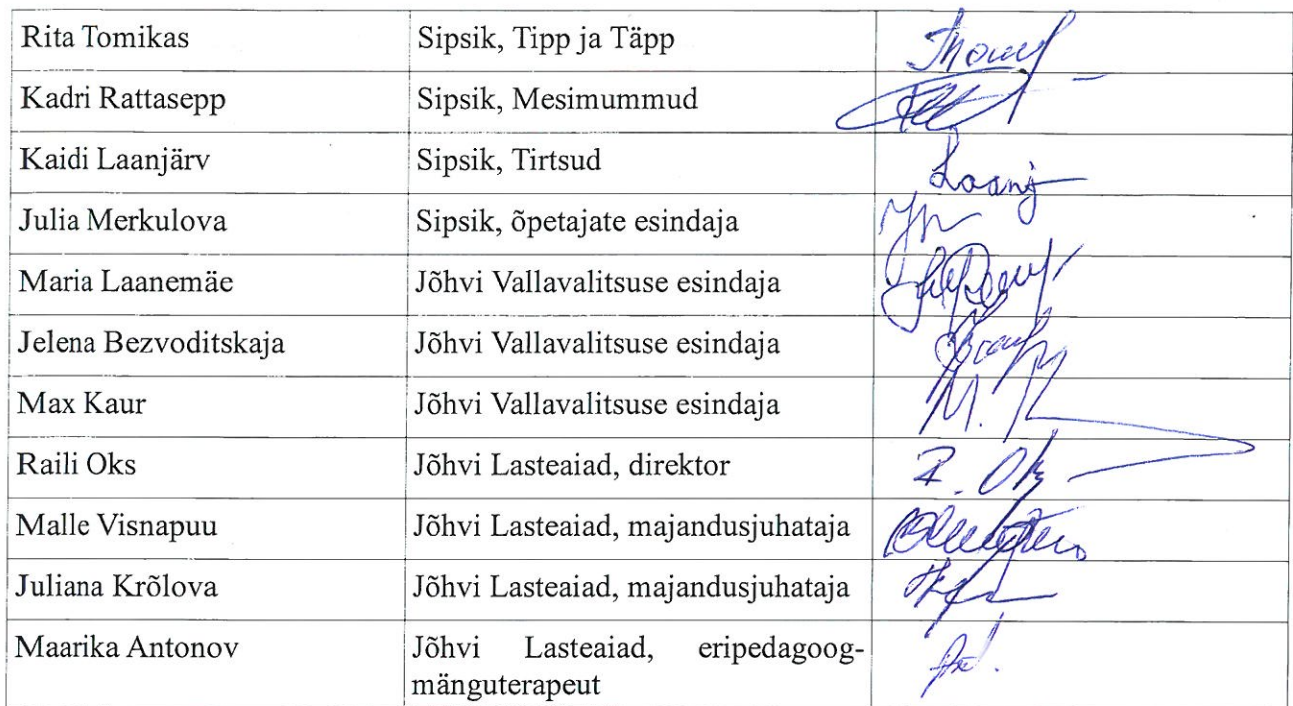 Rita Tomikas Sipsik, Tipp ja Täpp
Kadri Rattasepp Sipsik, Mesimummud
Kaidi Laanjärv Sipsik, Tirtsud Laanj
Julia Merkulova Sipsik, õpetajate esindaja
Maria Laanemäe Jõhvi Vallavalitsuse esindaja
Jelena Bezvoditskaja Jõhvi Vallavalitsuse esindaja
Max Kaur Jõhvi Vallavalitsuse esindaja M. K
Raili Oks Jõhvi Lasteaiad, direktor R. Oks
Malle Visnapuu Jõhvi Lasteaiad, majandusjuhataja
Juliana Krõlova Jõhvi Lasteaiad, majandusjuhataja
Maarika Antonov Jõhvi Lasteaiad, eripedagoog-
mänguterapeut